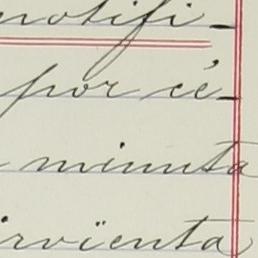 notifi-
por cé-
minuta
irvienta